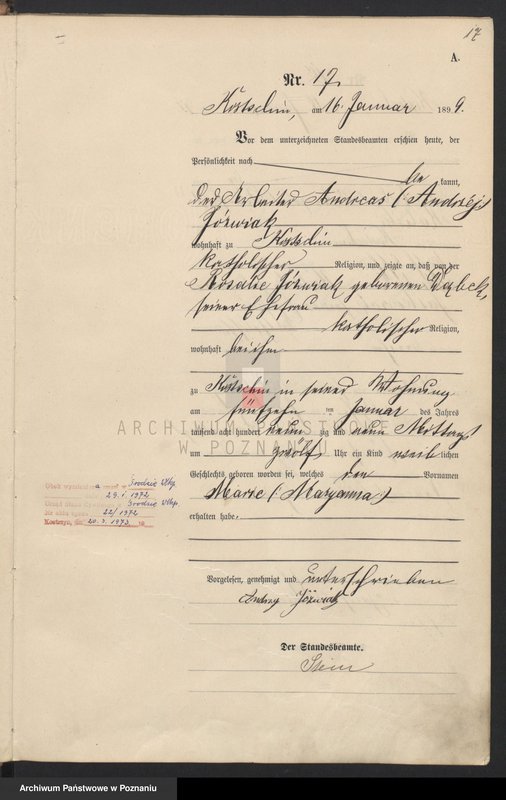 17
A.
Nr. 17.
Kostschin, am 16. Januar 1899.
Vor dem unterzeichneten Standesbeamten erschien heute, der
Persönlichkeit nach
be kannt,
der Arbeiter Andreas (Andrzej)
Jóźwiak
wohnhaft zu Kostschin
katholischer Religion, und zeigte an, daß von der
Rosalie Jóźwiak geborenen
seiner Ehefrau
katholischer Religion,
wohnhaft bei ihm
zu Kostschin in seiner Wohnung
am fünfzehn ten Januar des Jahres
tausend acht hundert neun zig und neun Mittags
um zwölf Uhr ein Kind weib lichen
Geschlechts geboren worden sei, welches den Vornamen
Marie (Maryanna)
erhalten habe.
Vorgelesen, genehmigt und unterschrieben
Andrzej Jóźwiak
Der Standesbeamte.
ARCHIWUM PAŃSTWOWE
W POZNANIU
Środzie Wlkp.
29.I.1972
Urząd Stanu Środzie Wlkp
22/1972
Kostrzyn, dn. 20.3.1973
Archiwum Państwowe w Poznaniu